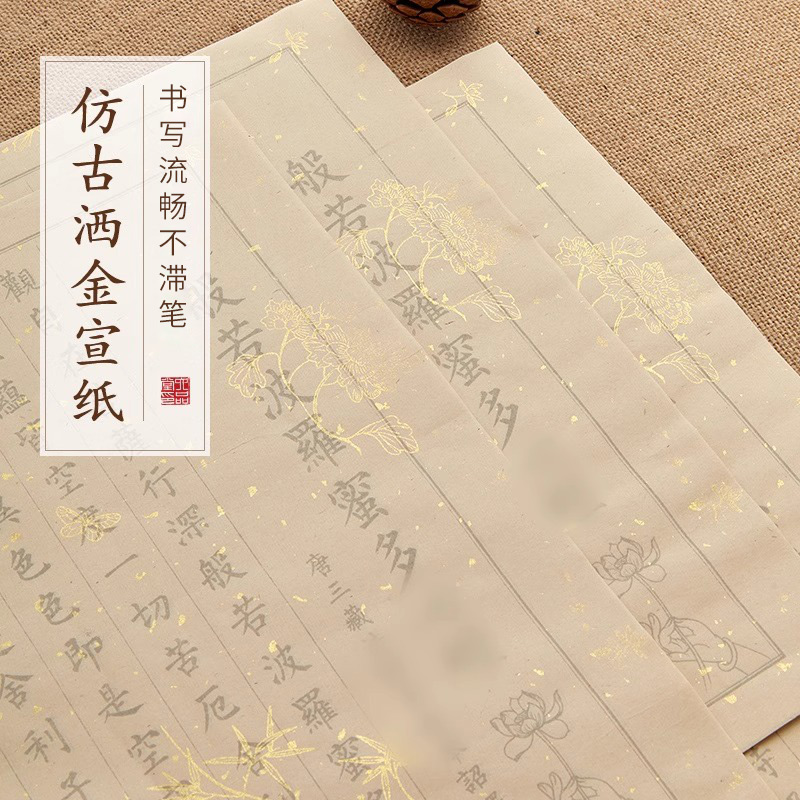 仿古洒金宣纸
书写流畅不滞笔
般若波羅蜜多
般若波羅蜜多
唐三藏
詔
觀自在薩行深般若波羅蜜
蘊皆空度一切苦厄舍
異色色即是空
舍利子